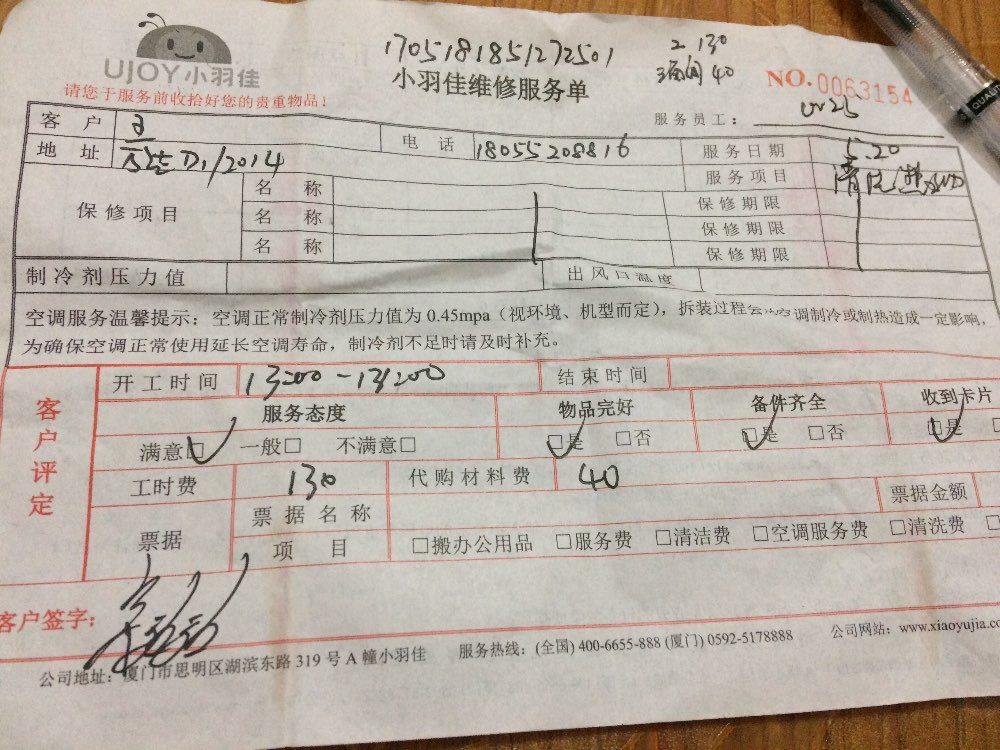 UJOY小羽佳
1705181851272501
2 130
40
小羽佳维修服务单
NO.0063154
请您于服务前收拾好您的贵重物品!
服务员工:
客户 王
电话 18055208816
服务日期 5.20
地址 D1/2014
服务项目 清洗
保修项目
名称 保修期限
名称 保修期限
名称 保修期限
制冷剂压力值 出风口温度
空调服务温馨提示:空调正常制冷剂压力值为 0.45mpa(视环境、机型而定),拆装过程会对空调制冷或制热造成一定影响,
为确保空调正常使用延长空调寿命,制冷剂不足时请及时补充。
客户评定
开工时间 结束时间
服务态度 物品完好 备件齐全 收到卡片
满意□ 一般□ 不满意□ □是 □否 □是 □否 □是
工时费 130 代购材料费 40
票据 票据名称 票据金额
项目 □搬办公用品 □服务费 □清洁费 □空调服务费 □清洗费
客户签字:
公司地址:厦门市思明区湖滨东路 319 号 A 幢小羽佳 服务热线:(全国) 400-6655-888 (厦门) 0592-5178888 公司网站:www.xiaoyujia.co